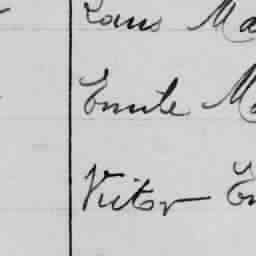 Louis Ma
Emile Ma
Victor Em